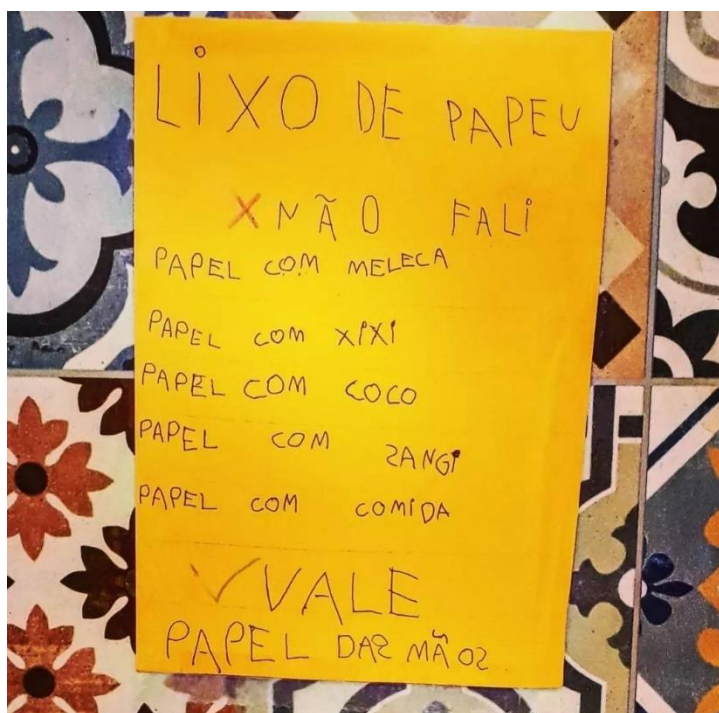 LIXO DE PAPEU
X NÃO FALI
PAPEL COM MELECA
PAPEL COM XIXI
PAPEL COM COCO
PAPEL COM SANGI
PAPEL COM COMIDA
✓ VALE
PAPEL DAS MÃOS